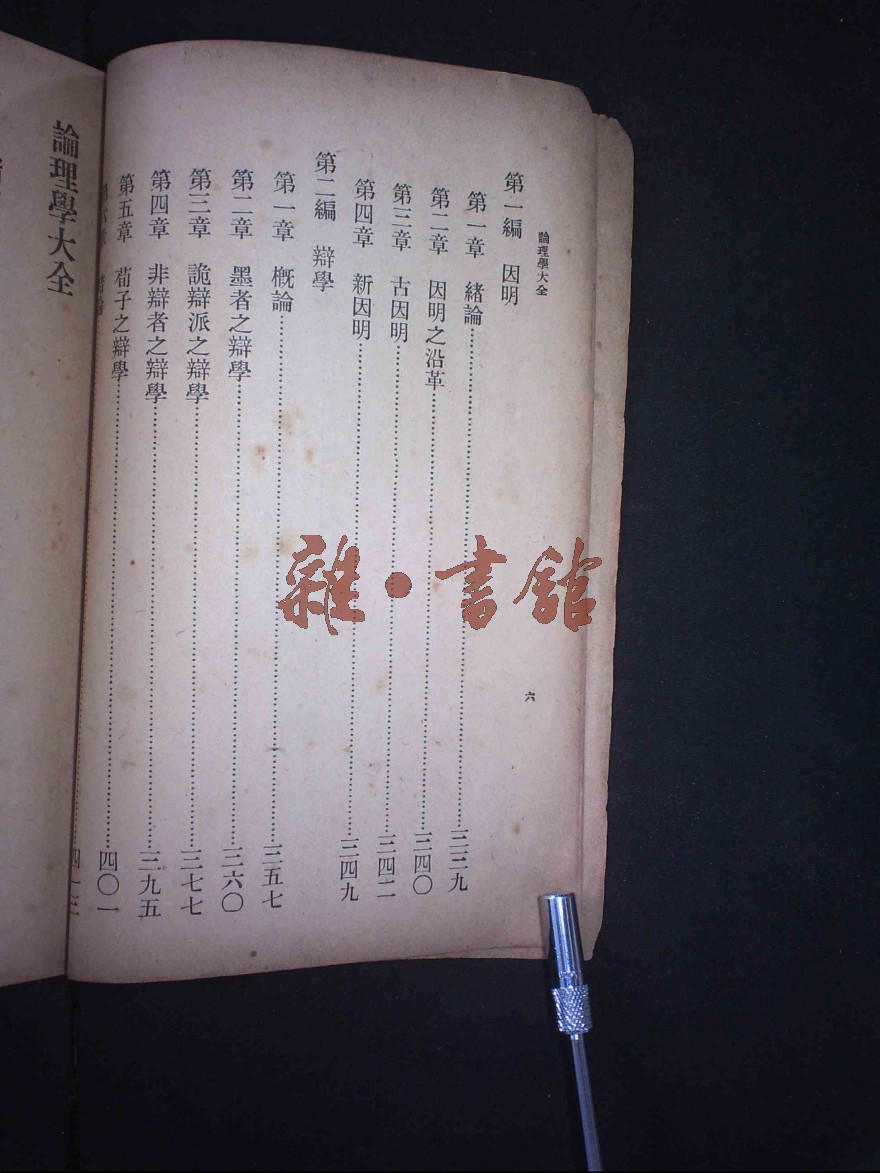 論理學大全
六
第一編 因明
第一章 緒論…………三三九
第二章 因明之沿革…………三四〇
第三章 古因明…………三四二
第四章 新因明…………三四九
第二編 辯學
第一章 概論…………三五七
第二章 墨者之辯學…………三六〇
第三章 詭辯派之辯學…………三七七
第四章 非辯者之辯學…………三九五
第五章 荀子之辯學…………四〇一
第六章
論理學大全
雜·書館